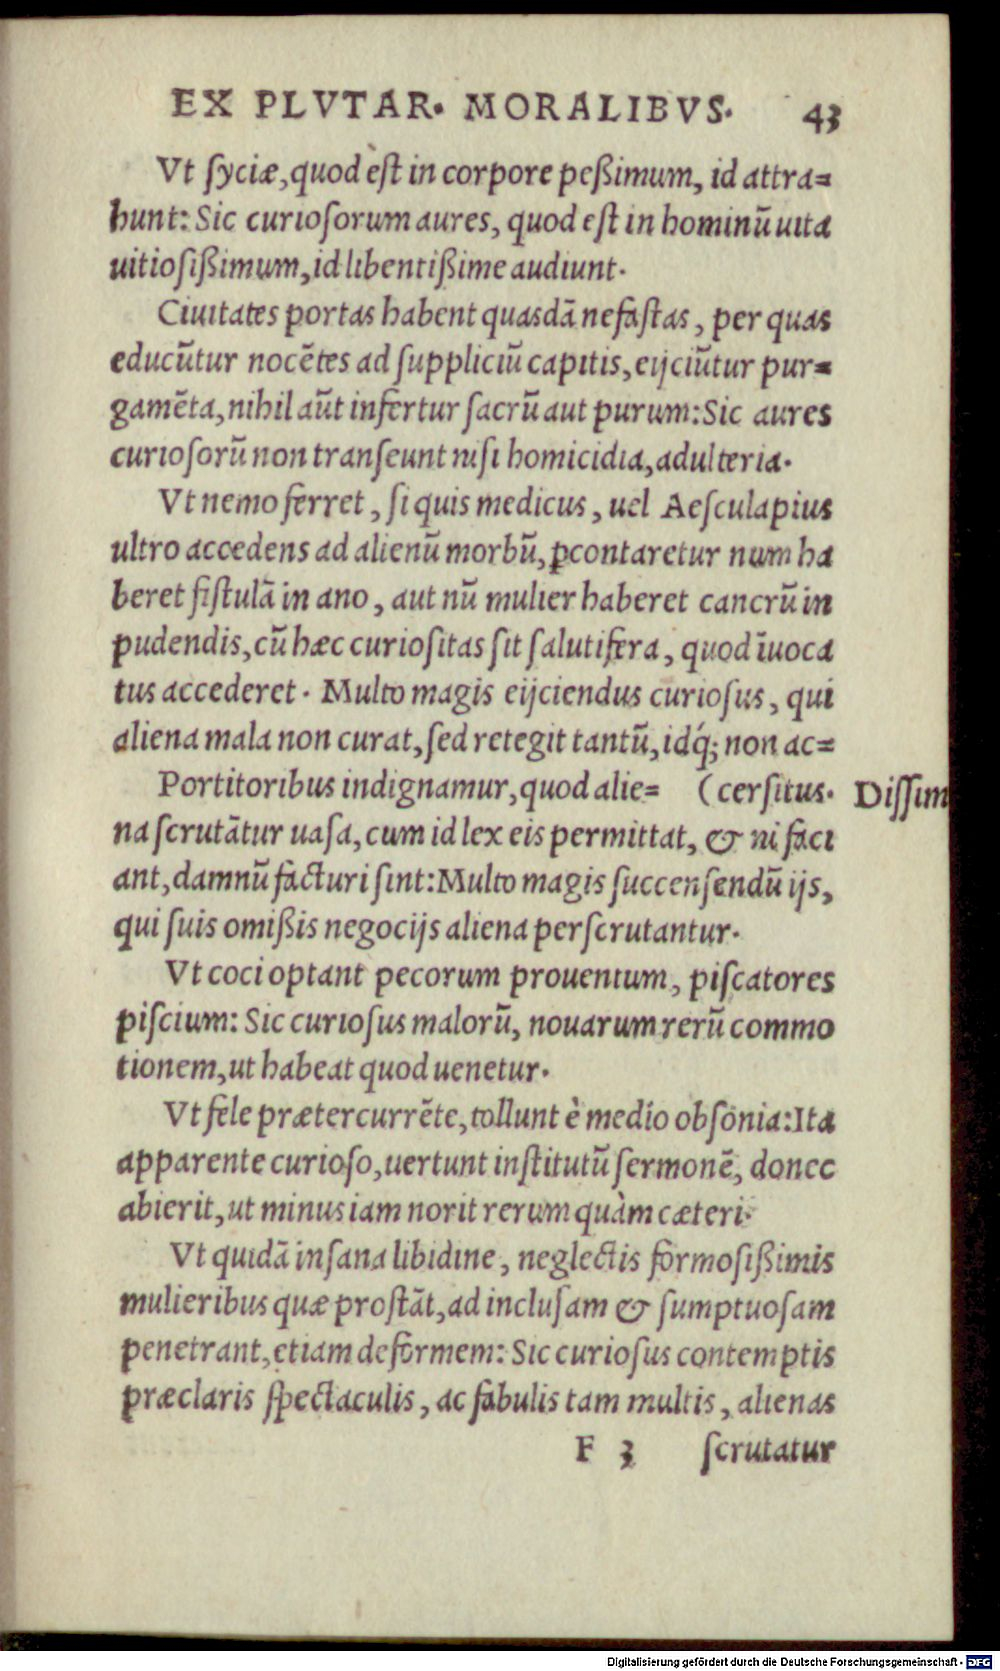 EX PLVTAR. MORALIBVS. 43
Vt ſyciæ, quod èſt in corpore peßimum, id attra=
hunt: Sic curioſorum aures, quod eſt in hominũ uita
uitioſißimum, id libentißime audiunt.
Ciuitates portas habent quasdã nefaſtas, per quas
educũtur nocẽtes ad ſuppliciũ capitis, eijciũtur pur=
gamẽta, nihil aũt infertur ſacrũ aut purum: Sic aures
curioſorũ non tranſeunt niſi homicidia, adulteria.
Vt nemo ferret, ſi quis medicus, uel Aeſculapius
ultro accedens ad alienũ morbũ, ꝑcontaretur num ha
beret fiſtulã in ano, aut nũ mulier haberet cancrũ in
pudendis, cũ hæc curioſitas ſit ſalutifera, quod ĩuoca
tus accederet. Multo magis eijciendus curioſus, qui
aliena mala non curat, ſed retegit tantũ, idq́; non ac=
Portitoribus indignamur, quod alie= (cerſitus. Diſſim
na ſcrutãtur uaſa, cum id lex eis permittat, & ni faci
ant, damnũ facturi ſint: Multo magis ſuccenſendũ ijs,
qui ſuis omißis negocijs aliena perſcrutantur.
Vt coci optant pecorum prouentum, piſcatores
piſcium: Sic curioſus malorũ, nouarum rerũ commo
tionem, ut habeat quod uenetur.
Vt fele prætercurrẽte, tollunt è medio obſonia: Ita
apparente curioſo, uertunt inſtitutũ ſermonẽ, donec
abierit, ut minus iam norit rerum quàm cæteri.
Vt quidã inſana libidine, neglectis formoſißimis
mulieribus quæ proſtãt, ad incluſam & ſumptuoſam
penetrant, etiam deformem: Sic curioſus contemptis
præclaris ſpectaculis, ac fabulis tam multis, alienas
F 3 ſcrutatur
Digitalisierung gefördert durch die Deutsche Forschungsgemeinschaft - DFG